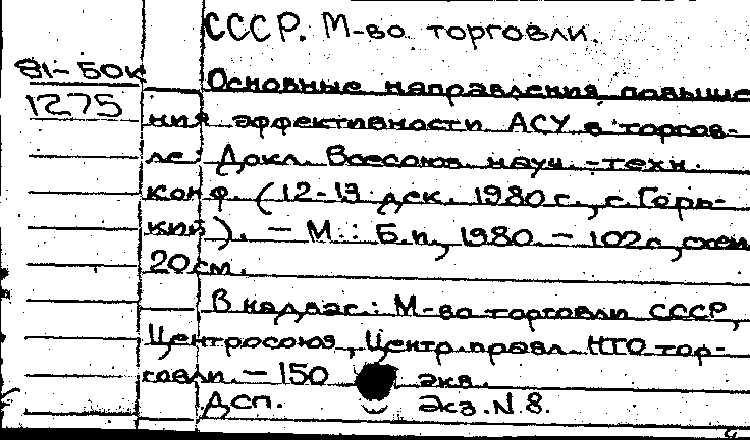 СССР. М-во торговли.
81-50к
Основные направления повыше
1275
ния эффективности АСУ в торгов-
ле: Докл. Всесоюз. науч.-техн.
конф. (12-13 дек. 1980 г., г. Горь-
кий). - М.: Б.и., 1980. - 102с., схем
20см.
В надзаг.: М-во торговли СССР,
Центросоюз, Центр. правл. НТО тор-
говли. - 150 экз.
ДСП. Экз. N 8.